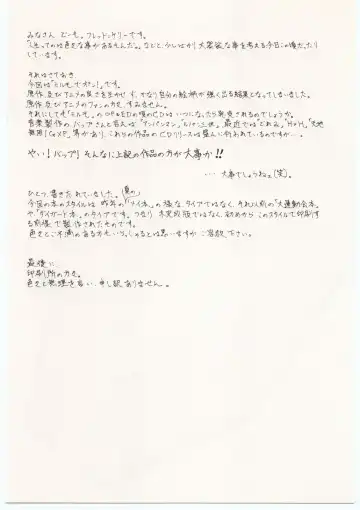 みなさん どーも。フレッド・ケリーです。
「人生っての は色々な事があるもんだ。」などと、少しばかり大雑把な事を考える今日この頃だったりしています。
それはさておき
今回は「ミルモでポン!」です。
原作 及び アニメの良さを生かせず、かなり自分の絵柄が強く出る結果となってしまいました。
原作 及び アニメのファンの方々、すみません。
それにしても「ミルモ」のOP&EDの曲のCDはいつになったら発売されるのでしょうか。
音楽製作の、バップさんと言えば「アンパンマン」、「ルパン三世」、最近では「どれみ」、「HxH」、「天地無用!GXP」等があり、これらの作品のCDリリースは盛んに行われているのですが…。
やい!バップ!そんなに上記の作品の方が大事か!!
… 大事でしょうね。(笑)。
ひとつ、書き忘れていました。
今回の本のスタイルは 昨年の(夏の)「ナイ本」の様なタイプではなく、それ以前の「大運動会本」や「ダイガード本」のタイプです。つまり 未完成版ではなく、初めから このスタイルで印刷する前提で製作されたものです。
色々とご不満のある方もいらっしゃるとは思いますが ご容赦下さい。
最後に
印刷所の方々。
色々と無理を言い、申し訳ありません。